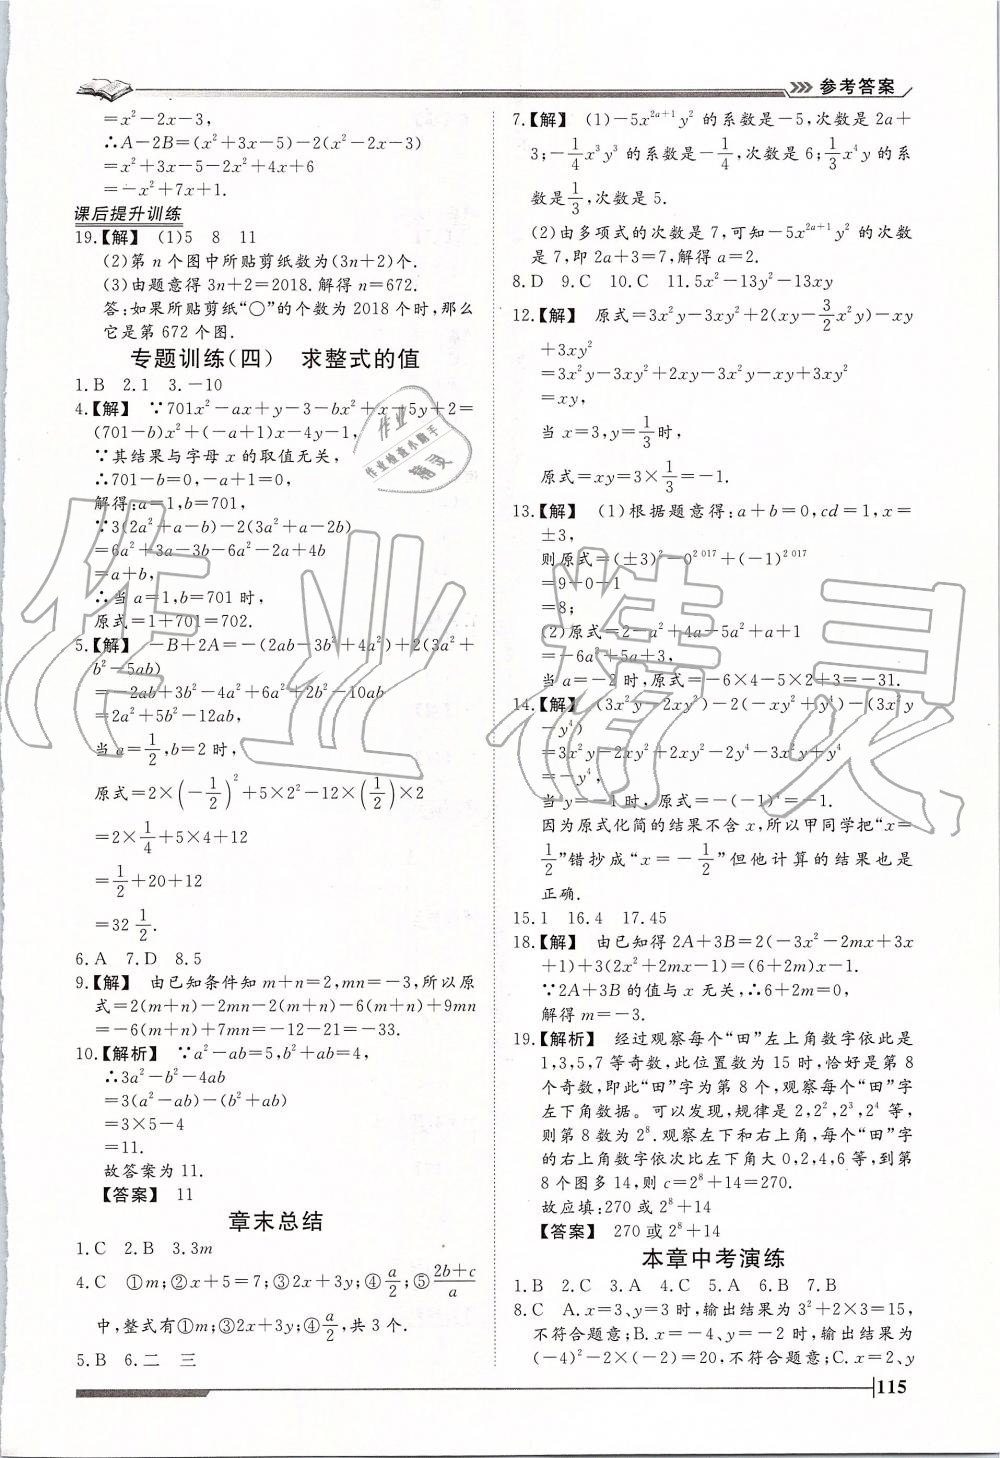 参考答案
=x²-2x-3,
∴A-2B=(x²+3x-5)-2(x²-2x-3)
=x²+3x-5-2x²+4x+6
=-x²+7x+1.
课后提升训练
19.【解】 (1)5 8 11
(2)第 n 个图中所贴剪纸数为(3n+2)个.
(3)由题意得 3n+2=2018.解得 n=672.
答:如果所贴剪纸“○”的个数为 2018 个时,那么
它是第 672 个图.
专题训练(四) 求整式的值
1.B 2.1 3.-10
4.【解】 ∵701x²-ax+y-3-bx²+x+5y+2=
(701-b)x²+(-a+1)x-4y-1,
∵其结果与字母 x 的取值无关,
∴701-b=0,-a+1=0,
解得:a=1,b=701,
∵3(2a²+a-b)-2(3a²+a-2b)
=6a²+3a-3b-6a²-2a+4b
=a+b,
∴当 a=1,b=701 时,
原式=1+701=702.
5.【解】 -B+2A=-(2ab-3b²+4a²)+2(3a²+
b²-5ab)
=-2ab+3b²-4a²+6a²+2b²-10ab
=2a²+5b²-12ab,
当 a=-1/2,b=2 时,
原式=2×(-1/2)²+5×2²-12×(1/2)×2
=2×1/4+5×4+12
=1/2+20+12
=32 1/2.
6.A 7.D 8.5
9.【解】 由已知条件知 m+n=2,mn=-3,所以原
式=2(m+n)-2mn-2(m+n)-6(m+n)+9mn
=-6(m+n)+7mn=-12-21=-33.
10.【解析】 ∵a²-ab=5,b²+ab=4,
∴3a²-b²-4ab
=3(a²-ab)-(b²+ab)
=3×5-4
=11.
故答案为 11.
【答案】 11
章末总结
1.C 2.B 3.3m
4.C ①m;②x+5=7;③2x+3y;④a/2;⑤(2b+c)/a
中,整式有①m;③2x+3y;④a/2,共 3 个.
5.B 6.二 三
7.【解】 (1)-5x²ᵃ⁺¹y² 的系数是-5,次数是 2a+
3;-1/4x³y³ 的系数是-1/4,次数是 6;1/3x⁴y 的系
数是1/3,次数是 5.
(2)由多项式的次数是 7,可知-5x²ᵃ⁺¹y² 的次数
是 7,即 2a+3=7,解得 a=2.
8.D 9.C 10.C 11.5x²-13y²-13xy
12.【解】 原式=3x²y-3xy²+2(xy-3/2x²y)-xy
+3xy²
=3x²y-3xy²+2xy-3x²y-xy+3xy²
=xy,
当 x=3,y=-1/3时,
原式=xy=3×1/3=-1.
13.【解】 (1)根据题意得:a+b=0,cd=1,x=
±3,
则原式=(±3)²-0²⁰¹⁷+(-1)²⁰¹⁷
=9-0-1
=8;
(2)原式=2-a²+4a-5a²+a+1
=-6a²+5a+3,
当 a=-2 时,原式=-6×4-5×2+3=-31.
14.【解】 (3x²y-2xy²)-2(-xy²+y⁴)-(3x²y
-y⁴)
=3x²y-2xy²+2xy²-2y⁴-3x²y+y⁴
=-y⁴,
当 y=-1 时,原式=-(-1)⁴=-1.
因为原式化简的结果不含 x,所以甲同学把“x=
1/2”错抄成“x=-1/2”但他计算的结果也是
正确.
15.1 16.4 17.45
18.【解】 由已知得 2A+3B=2(-3x²-2mx+3x
+1)+3(2x²+2mx-1)=(6+2m)x-1.
∵2A+3B 的值与 x 无关,∴6+2m=0,
解得 m=-3.
19.【解析】 经过观察每个“田”左上角数字依此是
1,3,5,7 等奇数,此位置数为 15 时,恰好是第 8
个奇数,即此“田”字为第 8 个,观察每个“田”字
左下角数据。可以发现,规律是 2,2²,2³,2⁴ 等,
则第 8 数为 2⁸.观察左下和右上角,每个“田”字
的右上角数字依次比左下角大 0,2,4,6 等,到第
8 个图多 14,则 c=2⁸+14=270.
故应填:270 或 2⁸+14
【答案】 270 或 2⁸+14
本章中考演练
1.B 2.C 3.A 4.C 5.A 6.B 7.B
8.C A.x=3、y=3 时,输出结果为 3²+2×3=15,
不符合题意;B.x=-4、y=-2 时,输出结果为
(-4)²-2×(-2)=20,不符合题意;C.x=2、y
115
作业精灵
作业
作业检查小助手
精灵